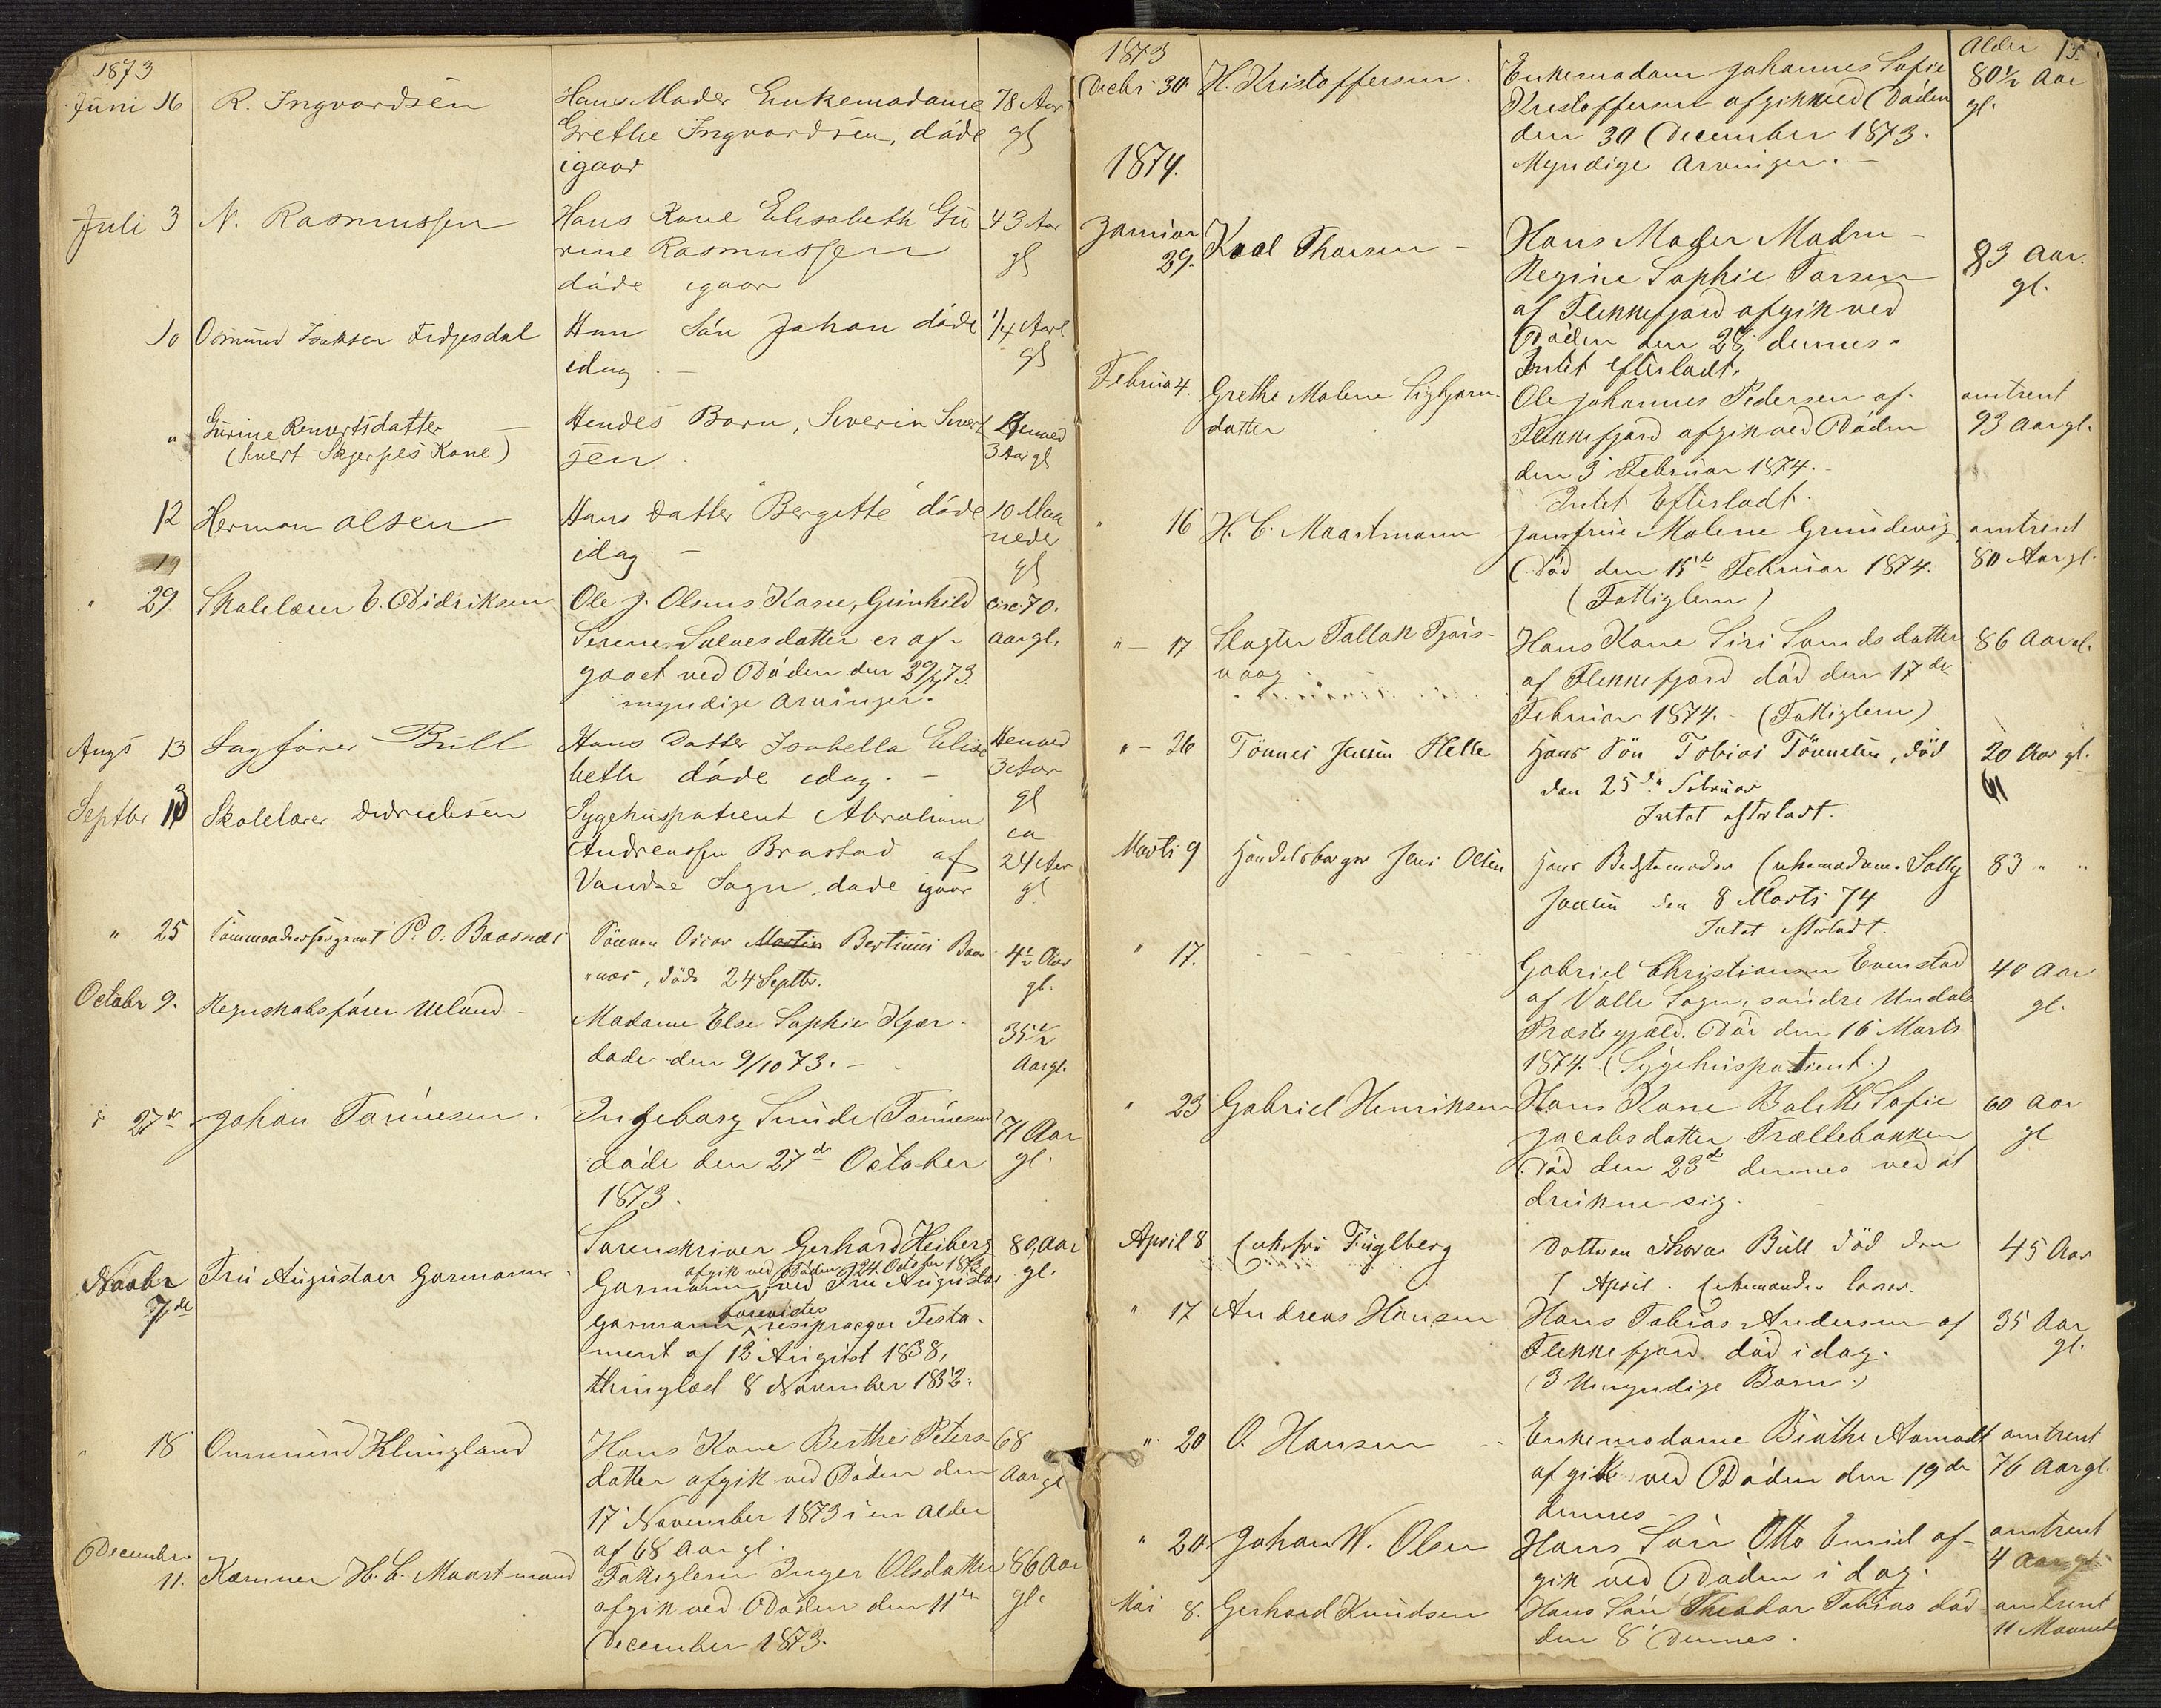 1873
Juni 16 R. Ingvardsen Hans Moder Enkemadame 78 Aar
Grethe Ingvardsen, døde gl
igaar
Juli 3 N. Rasmussen Hans Kone Elisabeth Gu 43 Aar
rine Rasmussen gl
døde igaar
10 Osmund Isaksen Fedjesdal Hans Søn Johan døde 1/4 Aar
idag. – gl
" Gurine Reinertsdatter – Hendes Barn, Severin Sivert Henved
(Sivert Skjerpes Kone) sen 3 Aar gl
12 Herman Olsen Hans Datter "Bergitte" døde 10 Maa
idag – neder
19 gl
" 29. Skolelærer E. Didriksen Ole J. Olsens Kone, Gunhild circ: 70.
Serene Salvesdatter er af- aar gl.
gaaet ved Døden den 29/7 73
myndige Arvinger.
Augs 13 Sagfører Bull Hans Datter Isabella Elisa Henved
beth døde idag. – 3 Aar
gl
Septbr 13 Skolelærer Didriksen Sygehuspatient Abraham ca
Andreassen Brastad af 24 Aar
Vandse Sogn, døde igaar gl
" 25 P. O. Baasnæs Sønnen Oscar Martin Bertinius Baas 4½ Aar
næs, døde 24 Septbr. gl.
Octobr 9. Regnskabsfører Ueland – Madame Else Sophie Kjær – 35½
døde den 9/10 73. – Aar gl.
" 27de Johan Tønnesen. Ingeborg Sunde (Tønnesen) 71 Aar
døde den 27de October gl.
1873.
Sorenskriver Gerhard Heiberg 89 Aar
afgik ved Døden 24 October 1873
Novbr Fru Augusta Garmann. Garmann, ved Fru Augusta gl.
7de forevistes
Garmann resiproque Testa-
ment af 12 August 1838,
thinglæst 8 November 1832.
" 18 Ommund Klungland Hans Kone Berthe Peters- 68
datter afgik ved Døden den Aar gl
17 November 1873 i en Alder
af 68 Aar gl.
December
11. Kæmner H. C. Maartmand Fattiglem Inger Olsdatter 86 Aar
afgik ved Døden den 11te gl.
December 1873.
1873 Alder 15.
Decbr 30. H. Kristoffersen. Enkemadam Johannes Sofie 80½ Aar
Kristoffersen afgik ved Døden gl.
den 30 December 1873.
1874. Myndige Arvinger. –
Januar
29. Karl Thorsen – Hans Moder Madm – 83 Aar.
Regine Sophie Torsen gl.
af Flekkefjord afgik ved
Døden den 28 dennes.
Intet Efterladt.
Februa 4. Grethe Malene Sigbjørns- Ole Johannes Pedersen af omtrent
datter Flekkefjord afgik ved Døden 93 Aar gl.
den 3 Februar 1874. –
Intet Efterladt.
" 16 H. C. Maartmann Jomfrue Malene Grundevig omtrent
Død den 15de Februar 1874. 80 Aar gl.
(Fattiglem)
" – 17 Slagter Tallak Tjørs- Hans Kone Siri Samdsdatter 86 Aar gl.
vaag af Flekkefjord død den 17de
Februar 1874. – (Fattiglem)
" – 26 Tønnes Jensen Helle Hans Søn Tobias Tønnesen, død 20 Aar gl.
den 25de Februar
Intet efterladt.
Marts 9 Handelsborger Jens Olsen Hans Enkemadame Sally 83 " "
Jensen den 8 Marts 74
Intet efterladt.
" 17. Gabriel Christiansen Evenstad 40 Aar
af Valle Sogn, søndre Undals gl.
Præstegjæld. Død den 16 Marts
1874. (Sygehuspatient.)
" 23 Gabriel Henriksen Hans Kone Bolette Sofie 60 Aar
Jacobsdatter Trællebakken gl
Død den 23de dennes ved at
drukne sig.
April 8 Enkefru Fuglberg Datteren Thora Bull død den 45 Aar
7 April.
" 17 Andreas Hansen Hans Tobias Andersen af 35 Aar
Flekkefjord død idag. gl.
(3 Umyndige Børn.)
" 20 O. Hansen Enkemadame Biathe Aamodt omtrent
afgik ved Døden den 19de 76 Aar gl.
dennes –
" 20. Johan W. Olsen Hans Søn Otto Emil af- omtrent
gik ved Døden i dag. 4 Aar gl.
Mai 8. Gerhard Knudsen Hans Søn Theodor Tobias død omtrent
den 8 Dennes. 11 Maaned